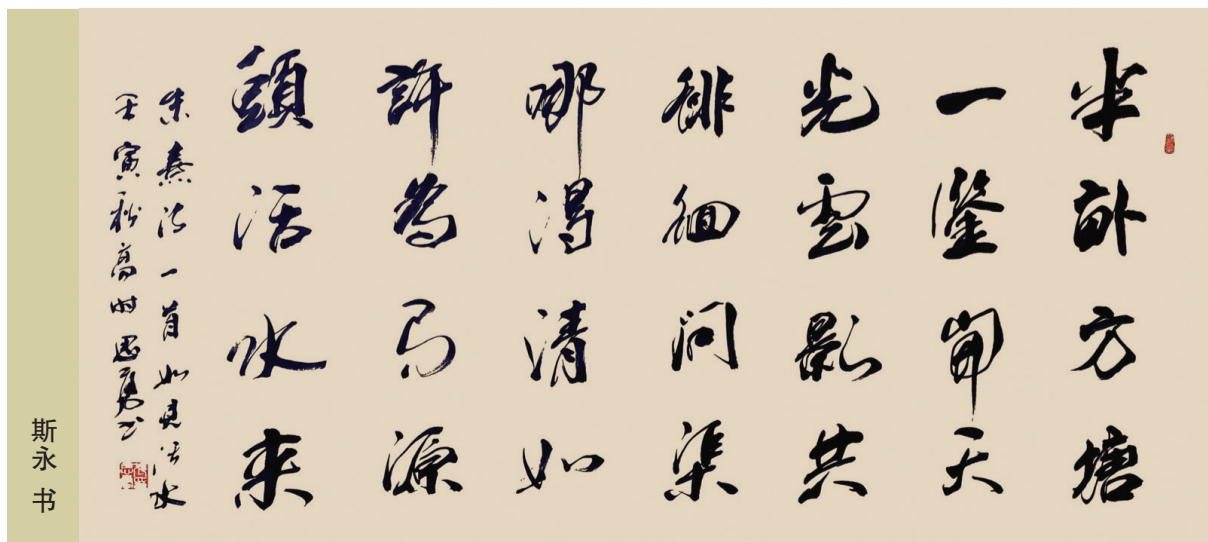 半畝方塘
一鑒開天
光雲影共
徘徊問渠
哪淂清如
許為有源
頭活水來
朱熹诗一首如見活水
壬寅秋高时思勇书
斯永 书